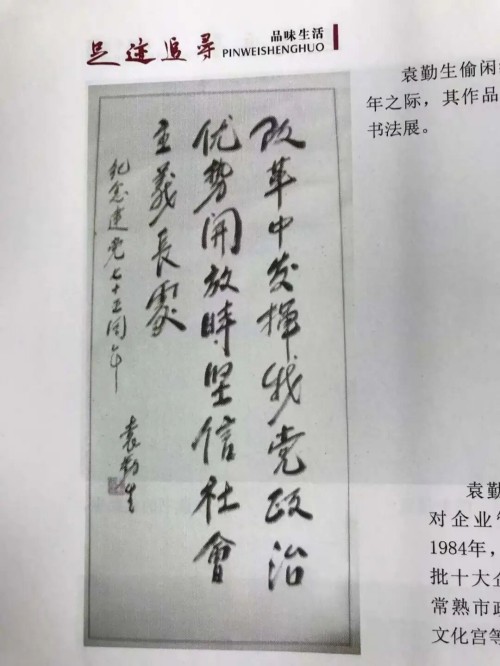 足迹追寻
品味生活
PINWEISHENGHUO
改革中发挥我党政治
优势開放時坚信社會
主義長處
纪念建党七十五周年
袁勤生
袁勤生偷闲
年之际，其作品
书法展。
袁勤
对企业管
1984年，
批十大企
常熟市政
文化宫等